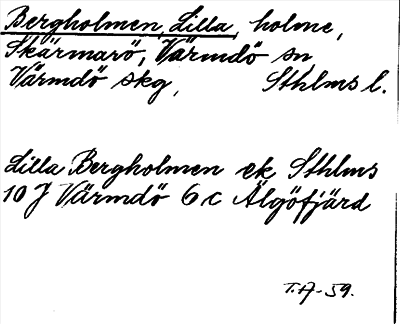 Bergholmen, Lilla, holme,
Skärmarö, Värmdö sn
Värmdö skg, Sthlms l.
Lilla Bergholmen ek Sthlms
10 J Värmdö 6 c Älgöfjärd
T.A-59.